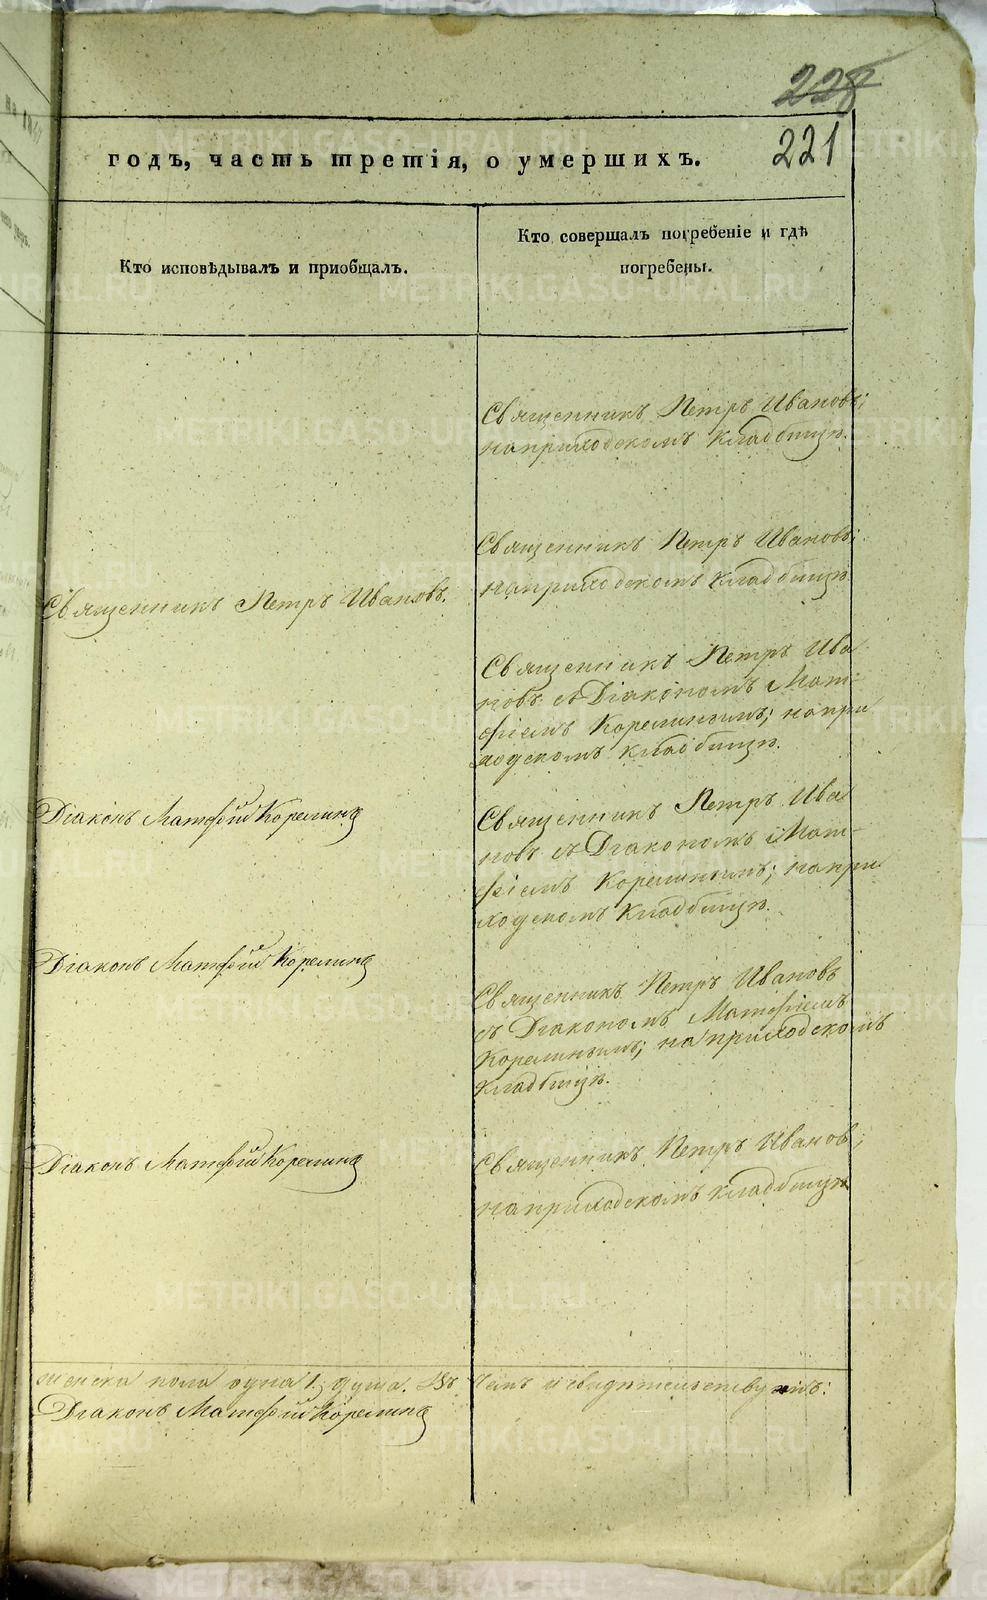 228
221
годъ, часть третія, о умершихъ.
Кто исповѣдывалъ и приобщалъ.
Кто совершалъ погребеніе и гдѣ
погребены.
Священникъ Петръ Ивановъ;
на приходскомъ кладбищѣ.
Священникъ Петръ Ивановъ;
на приходскомъ кладбищѣ
Священникъ Петръ Ивановъ.
Священникъ Петръ Ива
новъ съ Діакономъ Мат-
фіемъ Корелинымъ; на при
ходскомъ кладбищѣ.
Діаконъ Матфій Корелинъ
Священникъ Петръ Ива
новъ съ Діакономъ Мат-
фіемъ Корелинымъ; на при
ходскомъ кладбищѣ.
Діаконъ Матфій Корелинъ
Священникъ Петръ Ивановъ
съ Діакономъ Матфіемъ
Корелинымъ; на приходскомъ
кладбищѣ.
Діаконъ Матфій Корелинъ
Священникъ Петръ Ивановъ;
на приходскомъ кладбищѣ
женска пола одна 1, душа. Въ чемъ и свидѣтельствуемъ:
Діаконъ Матфій Корелинъ
METRIKI.GASO-URAL.RU